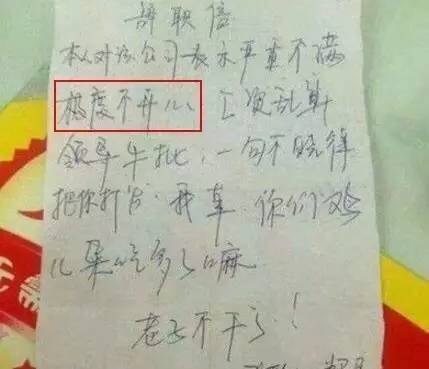 辞职信
本人对该公司表示严重不满
极度不开儿、工资乱算
领导牛批，一句不晓得
把你打发。我草，你们鸡
儿果吃多了嘛
老子不干了！